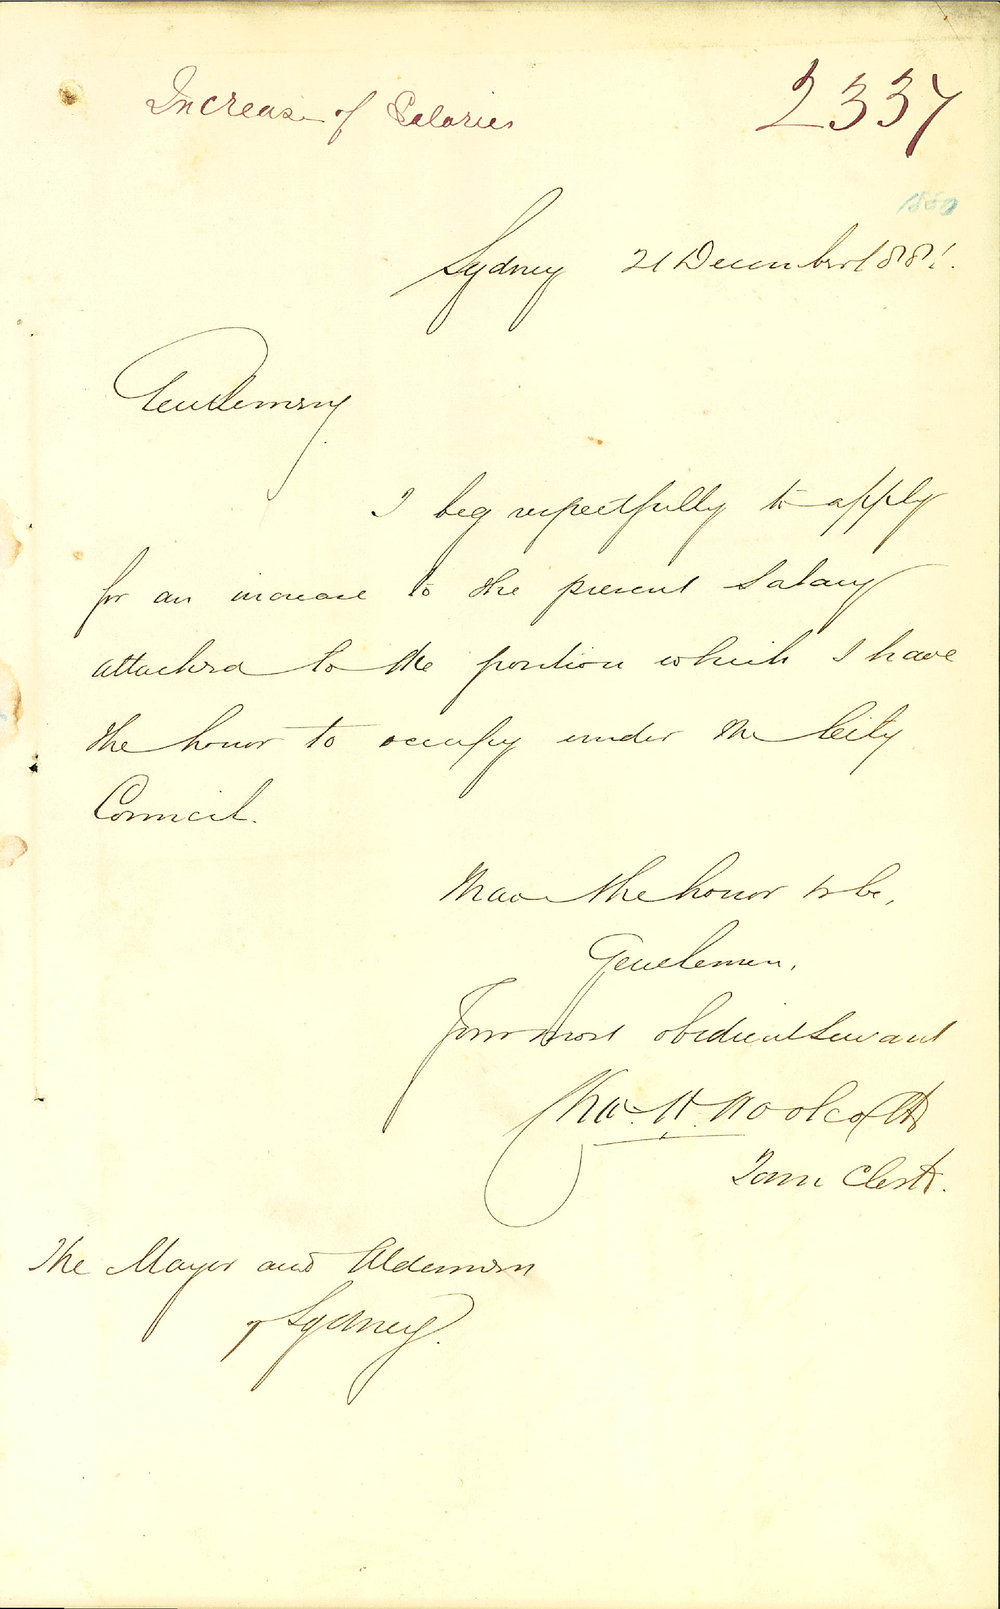 Increase of Salaries
2337
1880
Sydney 21 December 1881.
Gentlemen,
I beg respectfully to apply
for an increase to the present Salary
attached to the position which I have
the honor to occupy under the City
Council.
I have the honor to be,
Gentlemen,
Your most obedient Servant
Chas. H. Woolcott
Town Clerk.
The Mayor and Aldermen
of Sydney.